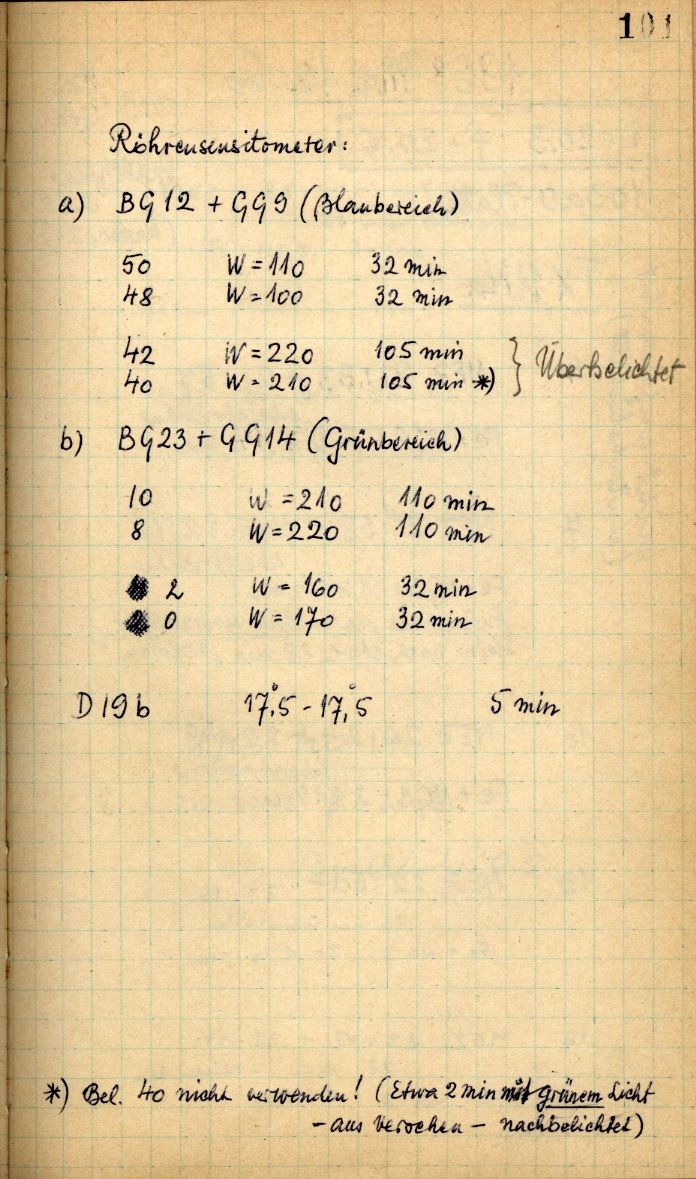 101
Röhrensensitometer:
a) BG12 + GG9 (Blaubereich)
50 W = 110 32 min
48 W = 100 32 min
42 W = 220 105 min
40 W = 210 105 min *) } Überbelichtet
b) BG23 + GG14 (Grünbereich)
10 W = 210 110 min
8 W = 220 110 min
2 W = 160 32 min
0 W = 170 32 min
D19b 17°,5 - 17°,5 5 min
*) Bel. 40 nicht verwenden! (Etwa 2 min mit grünem Licht
- aus Versehen - nachbelichtet)